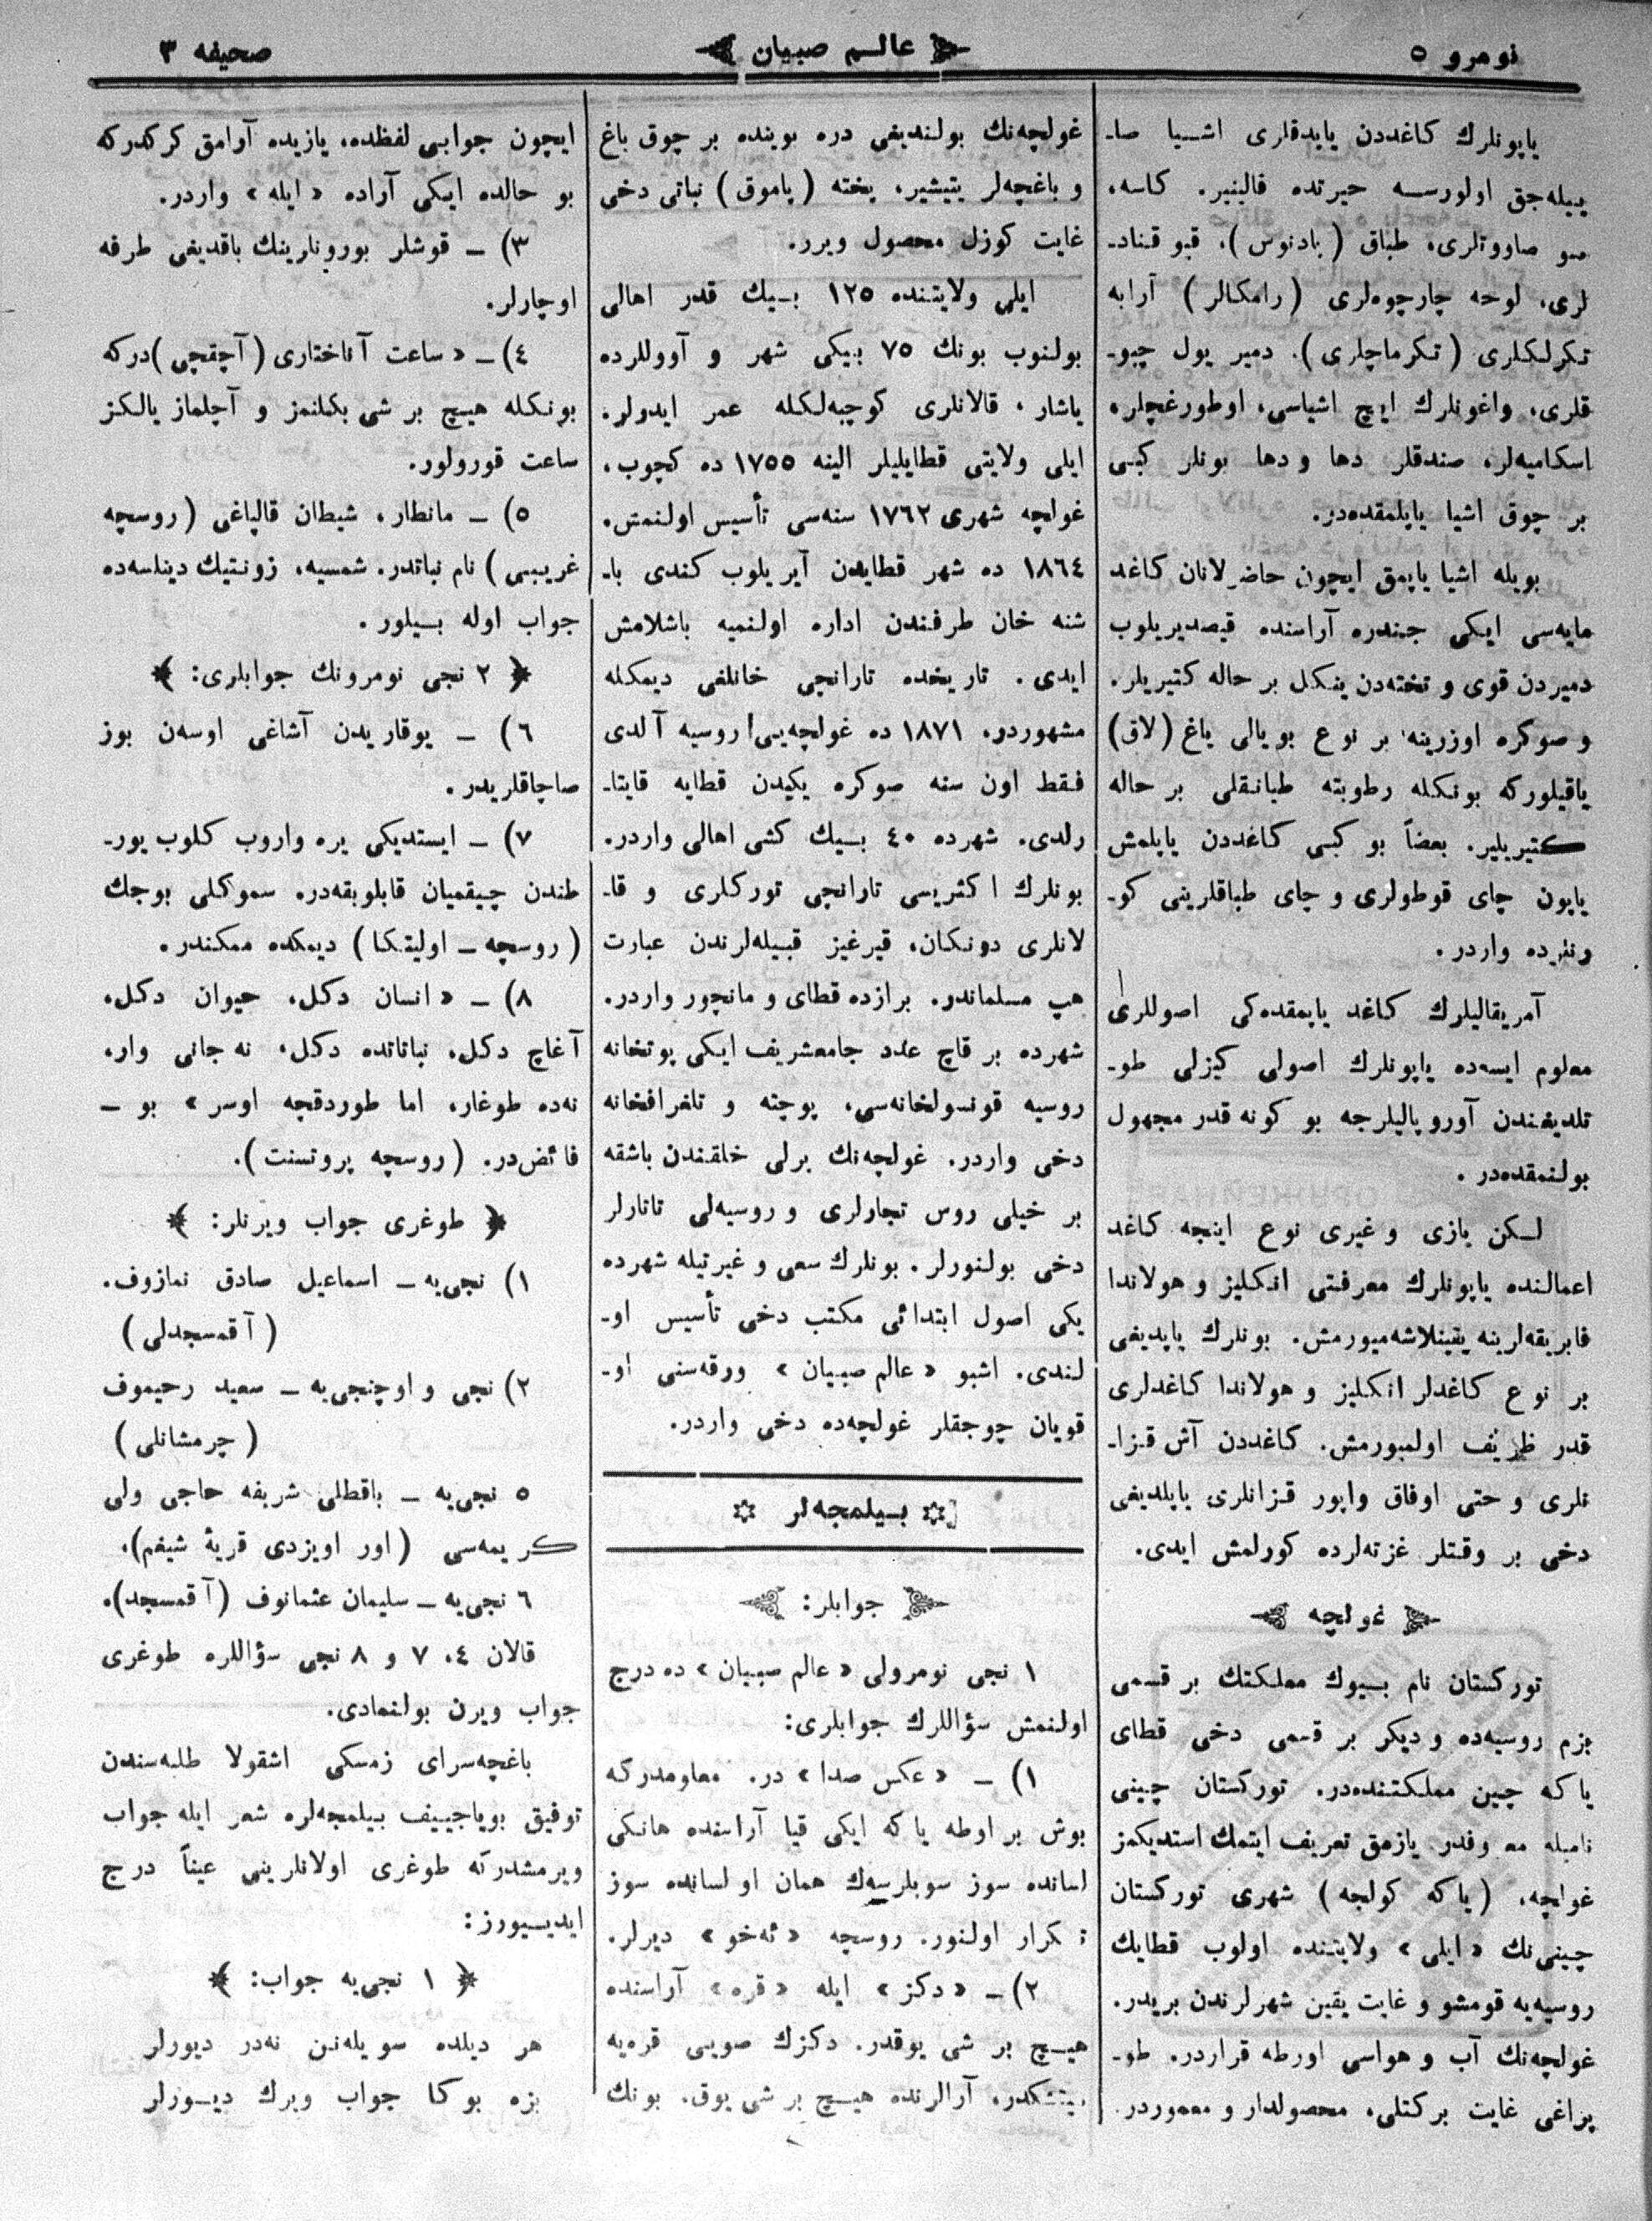 نومرو ٥
عالم صبيان
صحيفه ٣
ياپونلرك كاغددن ياپدقلرى اشيا صا-
ييله‌جق اولورسه حيرتده قالينير. كاسه،
صو صاووتلرى، طباق (بادنوس)، قپو قناد-
لرى، لوحه چارچوه‌لرى (رامكالر) آرابه
تكرلكلرى (تكرماچلرى). دمير يول چبو-
قلرى، واغونلرك ايچ اشياسى، اوطورغچلر،
اسكاميه‌لر، صندقلر دها و دها بونلر كبى
بر چوق اشيا ياپلمقده‌در.
بويله اشيا ياپمق ايچون حاضرلانان كاغد
مايه‌سى ايكى جندره آراسنده قيصديريلوب
دميردن قوى و تخته‌دن ينكل بر حاله كتيريلر.
و صوكره اوزرينه بر نوع بويالى ياغ (لاق)
ياقيلوركه بونكله رطوبته طيانقلى بر حاله
كتيريلير. بعضاً بو كبى كاغددن ياپلمش
ياپون چاى قوطولرى و چاى طباقلرينى كو-
ونلرده واردر.
آمريقاليلرك كاغد ياپمقده‌كى اصوللرى
معلوم ايسه‌ده ياپونلرك اصولى كيزلى طو-
تلديغندن آوروپاليلرجه بو كونه قدر مجهول
بولنمقده‌در.
لكن يازى و غيرى نوع اينجه كاغد
اعمالنده ياپونلرك معرفتى انكليز و هولاندا
فابريقه‌لرينه يقينلاشه‌ميورمش. بونلرك ياپديغى
بر نوع كاغدلر انكليز و هولاندا كاغدلرى
قدر ظريف اولميورمش. كاغددن آش قزا-
نلرى و حتى اوفاق واپور قزانلرى ياپلديغى
دخى بر وقتلر غزته‌لرده كورلمش ايدى.
غولجه
توركستان نام بيوك مملكتك بر قسمى
بزم روسيه‌ده و ديكر بر قسمى دخى قطاى
ياكه چين مملكتنده‌در. توركستان چينى
ناميله معروفدر. يازمق تعريف ايتمك استديكمز
غولجه، (ياكه كولجه) شهرى توركستان
چينى‌نك «ايلى» ولايتنده اولوب قطايك
روسيه‌يه قومشو و غايت يقين شهرلرندن بريدر.
غولجه‌نك آب و هواسى اورطه قراردر. طو-
پراغى غايت بركتلى، محصولدار و معموردر.
غولجه‌نك بولنديغى دره بوينده بر چوق باغ
و باغچه‌لر يتيشير، پخته (پاموق) نباتى دخى
غايت كوزل محصول ويرر.
ايلى ولايتنده ١٢٥ بيك قدر اهالى
بولنوب بونك ٧٥ بيكى شهر و آووللرده
ياشار، قالانلرى كوچبه‌لكله عمر ايدولر.
ايلى ولايتى قطايليلر الينه ١٧٥٥ ده كچوب،
غولجه شهرى ١٧٦٢ سنه‌سى تأسيس اولنمش.
١٨٦٤ ده شهر قطايدن آيريلوب كندى با-
شنه خان طرفندن اداره اولنميه باشلامش
ايدى. تاريخده تارانچى خانلغى ديمكله
مشهوردر. ١٨٧١ ده غولجه‌يى روسيه آلدى
فقط اون سنه صوكره يكيدن قطايه قايتا-
رلدى. شهرده ٤٠ بيك كشى اهالى واردر.
بونلرك اكثريسى تارانچى توركلرى و قا-
لانلرى دونكان، قيرغيز قبيله‌لرندن عبارت
هپ مسلماندر. برازده قطاى و مانچور واردر.
شهرده بر قاچ عدد جامعشريف ايكى پوتخانه
روسيه قونسولخانه‌سى، پوچته و تلغرافخانه
دخى واردر. غولجه‌نك يرلى خلقندن باشقه
بر خيلى روس تجارلرى و روسيه‌لى تاتارلر
دخى بولنورلر. بونلرك سعى و غيرتيله شهرده
يكى اصول ابتدائى مكتب دخى تأسيس او-
لندى. اشبو «عالم صبيان» ورقه‌سنى او-
قويان چوجقلر غولجه‌ده دخى واردر.
بيلمجه‌لر
جوابلر:
١ نجى نومرولى «عالم صبيان» ده درج
اولنمش سؤاللرك جوابلرى:
١) – «عكس صدا» در. معلومدركه
بوش بر اوطه ياكه ايكى قيا آراسنده هانكى
لسانده سوز سويلرسه‌ك همان او لسانده سوز
تكرار اولنور. روسچه «ئه‌خو» ديرلر.
٢) – «دكز» ايله «قره» آراسنده
هيچ بر شى يوقدر. دكزك صويى قره‌يه
يتيشكدر، آرالرنده هيچ بر شى يوق. بونك
ايچون جوابى لفظده، يازيده آرامق كركدركه
بو حالده ايكى آراده «ايله» واردر.
٣) – قوشلر بورونارينك باقديغى طرفه
اوچارلر.
٤) – «ساعت آناختارى (آچقچى)دركه
بونكله هيچ بر شى بكلنمز و آچلماز يالكز
ساعت قورولور.
٥) – مانطار، شيطان قالپاغى (روسچه
غريبى) نام نباتدر. شمسيه، زونتيك دينلسه‌ده
جواب اوله بيلور.
٢ نجى نومرونك جوابلرى:
٦) – يوقاريدن آشاغى اوسه‌ن بوز
صاچاقلريدر.
٧) – ايستديكى يره واروب كلوب يور-
طندن چيقميان قاپلوبقه‌در. سموكلى بوجك
(روسچه – اوليتكا) ديمكده ممكندر.
٨) – «انسان دكل، حيوان دكل،
آغاچ دكل، نباتاتده دكل، نه جانى وار،
نه‌ده طوغار، اما طوردقچه اوسر» بو –
فائض‌در. (روسچه پروتسنت).
طوغرى جواب ويرنلر:
١) نجى‌يه – اسماعيل صادق نمازوف.
(آقمسجدلى)
٢) نجى و اوچنجى‌يه – سعيد رحيموف
(چرمشانلى)
٥ نجى‌يه – باقطلى شريفه حاجى ولى
كريمه‌سى (اور اويزدى قريهٔ شيغم)،
٦ نجى‌يه – سليمان عثمانوف (آقمسجد).
قالان ٤، ٧ و ٨ نجى سؤاللره طوغرى
جواب ويرن بولنمادى.
باغچه‌سراى زمسكى اشقولا طلبه‌سندن
توفيق بوياجييف بيلمجه‌لره شعر ايله جواب
ويرمشدركه طوغرى اولانلرينى عيناً درج
ايدييورز:
١ نجى‌يه جواب:
هر ديلده سويله‌نن نه‌در ديورلر
بزه بوكا جواب ويرك ديورلر